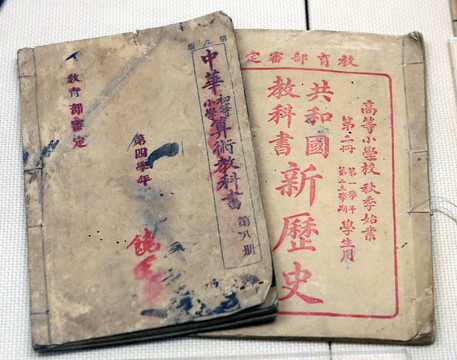 中華
初等
小學
算術教科書
第八册
教育部審定
第四學年
饒
教育部審定
高等小學校 秋季始業
第二冊
第一學年
第二三學期
學生用
共和國
教科書
新歷史